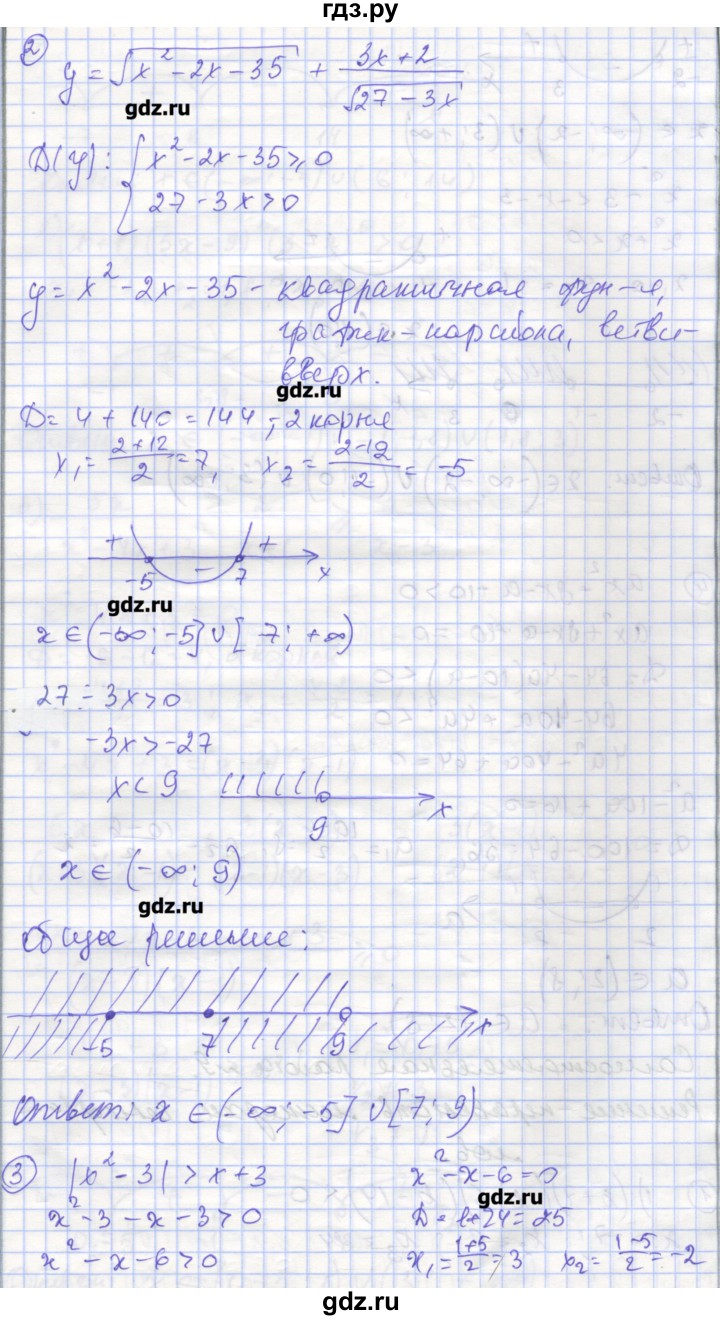 гдз.ру
2 y = √(x² - 2x - 35) + (3x + 2)/√(27 - 3x)
gdz.ru
D(y): { x² - 2x - 35 ≥ 0
27 - 3x > 0
y = x² - 2x - 35 - квадратичная фун-я,
график - парабола, ветви -
вверх.
gdz.ru
D = 4 + 140 = 144; 2 корня
x₁ = (2 + 12)/2 = 7, x₂ = (2 - 12)/2 = -5
+ - +
-5 7 x
gdz.ru
x ∈ (-∞; -5] ∪ [7; +∞)
27 - 3x > 0
-3x > -27
x < 9 x
9
x ∈ (-∞; 9)
gdz.ru
Общее решение:
-5 7 9 x
Ответ: x ∈ (-∞; -5] ∪ [7; 9)
3 |x² - 3| > x + 3 x² - x - 6 = 0
gdz.ru
x² - 3 - x - 3 > 0 D = 1 + 24 = 25
x² - x - 6 > 0 x₁ = (1 + 5)/2 = 3 x₂ = (1 - 5)/2 = -2
gdz.ru